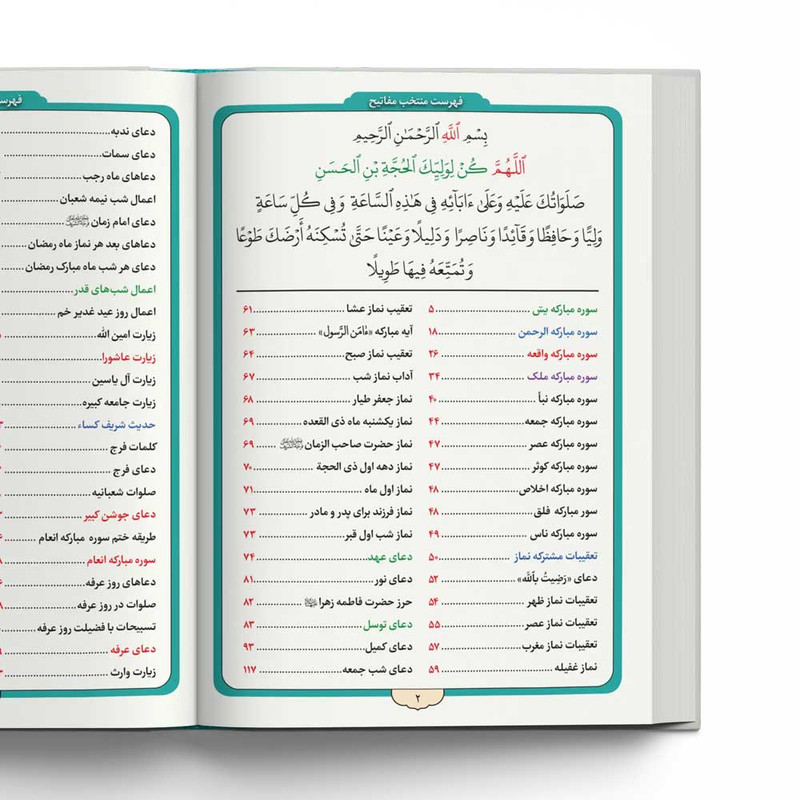 فهرست منتخب مفاتیح
بِسْمِ ٱللَّهِ ٱلرَّحْمَـٰنِ ٱلرَّحِيمِ
ٱللَّـهُمَّ كُنْ لِوَلِيِّكَ ٱلْحُجَّةِ بْنِ ٱلْحَسَنِ
صَلَوَاتُكَ عَلَيْهِ وَعَلَىٰ ءَابَآئِهِ فِي هَـٰذِهِ ٱلسَّاعَةِ وَفِي كُلِّ سَاعَةٍ
وَلِيًّا وَحَافِظًا وَقَآئِدًا وَنَاصِرًا وَدَلِيلًا وَعَيْنًا حَتَّىٰ تُسْكِنَهُ أَرْضَكَ طَوْعًا
وَتُمَتِّعَهُ فِيهَا طَوِيلًا
سوره مبارکه یسٓ ۵
سوره مبارکه الرحمن ۱۸
سوره مبارکه واقعه ۲۶
سوره مبارکه ملک ۳۴
سوره مبارکه نبأ ۴۰
سوره مبارکه جمعه ۴۴
سوره مبارکه عصر ۴۷
سوره مبارکه کوثر ۴۷
سوره مبارکه اخلاص ۴۸
سور مبارکه فلق ۴۸
سوره مبارکه ناس ۴۹
تعقیبات مشترکه نماز ۵۰
دعای «رَضِیتُ بِاللَّه» ۵۲
تعقیبات نماز ظهر ۵۴
تعقیبات نماز عصر ۵۵
تعقیبات نماز مغرب ۵۷
نماز غفیله ۵۹
تعقیب نماز عشا ۶۱
آیه مبارکه «ءَامَنَ الرَّسول» ۶۳
تعقیب نماز صبح ۶۴
آداب نماز شب ۶۷
نماز جعفر طیار ۶۸
نماز یکشنبه ماه ذی القعده ۶۹
نماز حضرت صاحب الزمان ۶۹
نماز دهه اول ذی الحجة ۷۰
نماز اول ماه ۷۱
نماز فرزند برای پدر و مادر ۷۳
نماز شب اول قبر ۷۳
دعای عهد ۷۴
دعای نور ۸۱
حرز حضرت فاطمه زهرا ۸۲
دعای توسل ۸۳
دعای کمیل ۹۳
دعای شب جمعه ۱۱۷
۲
دعای ندبه
دعای سمات
دعاهای ماه رجب
اعمال شب نیمه شعبان
دعای امام زمان
دعاهای بعد هر نماز ماه رمضان
دعای هر شب ماه مبارک رمضان
اعمال شب‌های قدر
اعمال روز عید غدیر خم
زیارت امین الله
زیارت عاشورا
زیارت آل یاسین
زیارت جامعه کبیره
حدیث شریف کساء
کلمات فرج
دعای فرج
صلوات شعبانیه
دعای جوشن کبیر
طریقه ختم سوره مبارکه انعام
سوره مبارکه انعام
دعاهای روز عرفه
صلوات در روز عرفه
تسبیحات با فضیلت روز عرفه
دعای عرفه
زیارت وارث